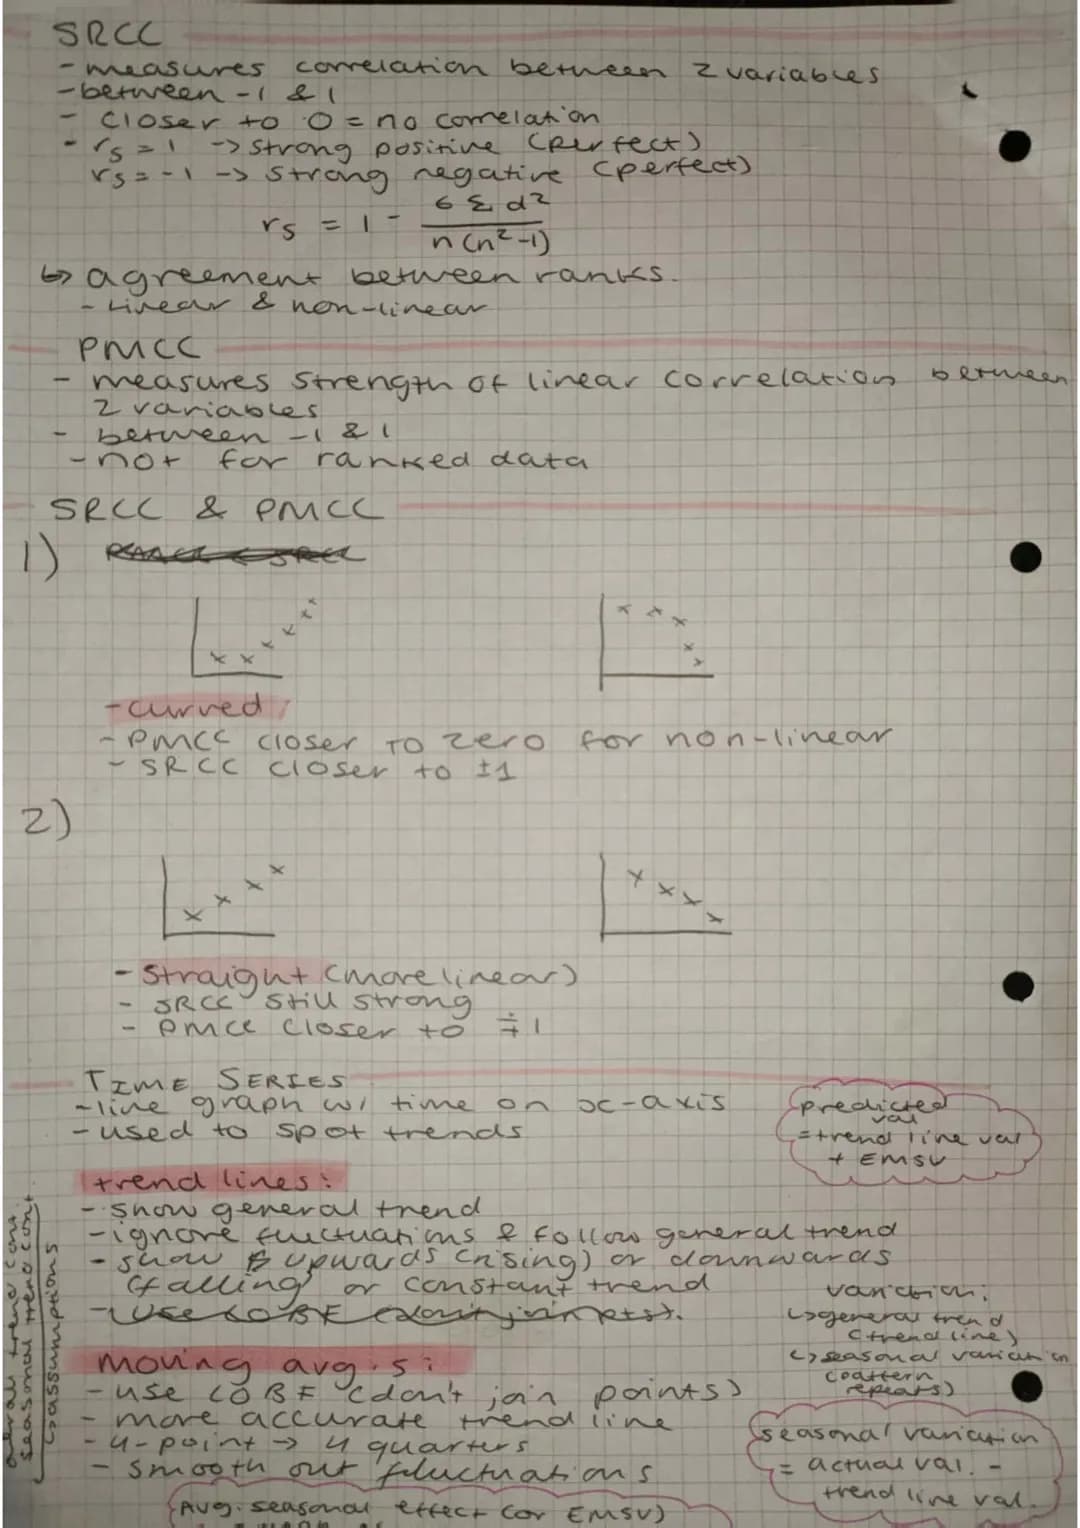 SRCC
- measures correlation between 2 variables
- between -1 & 1
- closer to 0 = no correlation
- rs = 1 -> strong positive (perfect)
rs = -1 -> strong negative (perfect)
rs = 1 - 6 Σ d² / n(n²-1)
↳ agreement between ranks.
- Linear & non-linear
PMCC
- measures strength of linear correlation between
2 variables
- between -1 & 1
- not for ranked data
SRCC & PMCC
1)
- curved
- PMCC closer to zero for non-linear
- SRCC closer to ±1
2)
- Straight (more linear)
- SRCC still strong
- PMCC closer to ∓1
TIME SERIES
- line graph w/ time on x-axis
- used to spot trends
predicted
val
= trend line val
+ EMSV
trend lines:
- show general trend
- ignore fluctuations & follow general trend
- show upwards (rising) or downwards
(falling) or constant trend
- use LOBF (don't join pts).
variation:
↳ general trend
(trend line)
↳ seasonal variation
(pattern
repeats)
moving avg.s:
- use LOBF (don't join points)
- more accurate trend line
- 4-point -> 4 quarters
- smooth out fluctuations
seasonal variation
= actual val. -
trend line val.
trend cont.
seasonal trend cont.
↳ assumptions
Avg. seasonal effect (or EMSV)